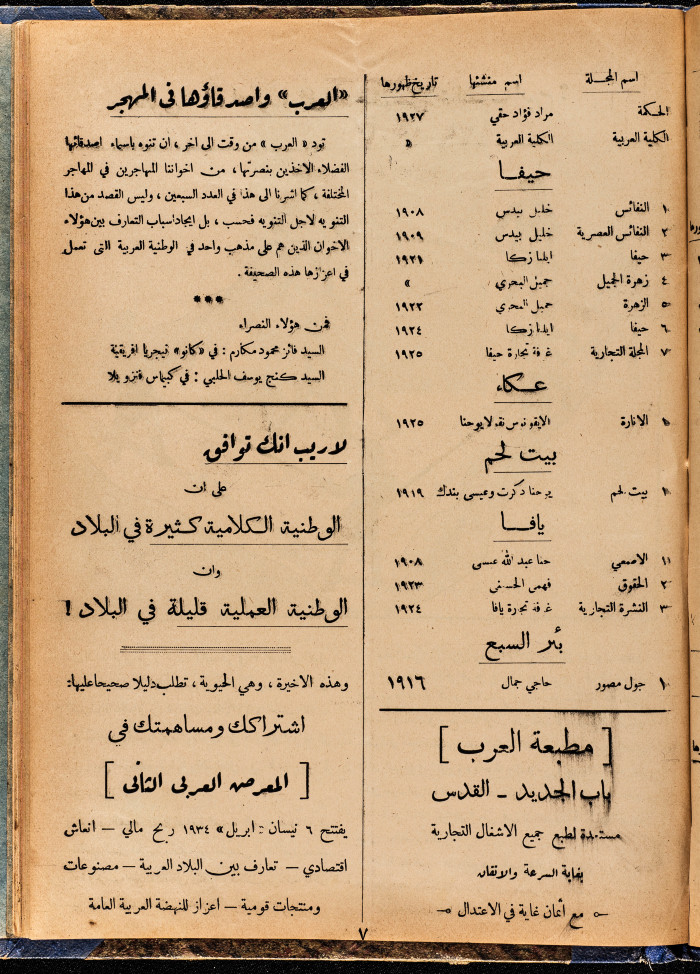 اسم المجلة اسم منشئها تاريخ ظهورها
الحكمة مراد فؤاد حقي ١٩٢٧
الكلية العربية الكلية العربية »
حيفا
١ النفائس خليل بيدس ١٩٠٨
٢ النفائس العصرية خليل بيدس ١٩٠٩
٣ حيفا ايليا زكا ١٩٢١
٤ زهرة الجميل جميل البحري »
٥ الزهرة جميل البحري ١٩٢٢
٦ حيفا ايليا زكا ١٩٢٤
٧ المجلة التجارية غرفة تجارة حيفا ١٩٢٥
عكاء
١ الانارة نقولا يوحنا ١٩٢٥
بيت لحم
١ بيت لحم يوحنا دكرت وعيسى بندك ١٩١٩
يافا
١ الاصمعي حنا عبد الله عيسى ١٩٠٨
٢ الحقوق فهمي الحسيني ١٩٢٣
٣ النشرة التجارية غرفة تجارة يافا ١٩٢٤
بئر السبع
١ جول مصور حاجي جمال ١٩١٦
[ مطبعة العرب ]
باب الجديد - القدس
مستعدة لطبع جميع الاشغال التجارية
بغاية السرعة والاتقان
مع أثمان غاية في الاعتدال
«العرب» واصدقاؤها في المهجر
تود « العرب » من وقت الى اخر ، ان تنوه باسماء اصدقائها
الفضلاء الاخذين بنصرتها ، من اخواننا المهاجرين في المهاجر
المختلفة ، كما اشرنا الى هذا في العدد السبعين ، وليس القصد من هذا
التنويه لاجل التنويه فحسب ، بل ايجاد اسباب التعارف بين هؤلاء
الاخوان الذين هم على مذهب واحد في الوطنية العربية التى تعمل
في اعزازها هذه الصحيفة .
***
فمن هؤلاء النصراء
السيد فائز محمود مكارم : في «كانو» نيجريا افريقية
السيد كنج يوسف الحلبي : في كبياس فنزويلا
لاريب انك توافق
على ان
الوطنية الكلامية كثيرة في البلاد
وان
الوطنية العملية قليلة في البلاد !
وهذه الاخيرة ، وهي الحيوية ، تطلب دليلا صحيحا عليها:
اشتراكك ومساهمتك في
[ المعرض العربى الثانى ]
يفتتح ٦ نيسان « ابريل» ١٩٣٤ ربح مالي — انعاش
اقتصادي — تعارف بين البلاد العربية — مصنوعات
ومنتجات قومية — اعزاز للنهضة العربية العامة
٧